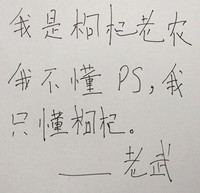 我是枸杞老农
我不懂 PS，我
只懂枸杞。
—— 老武